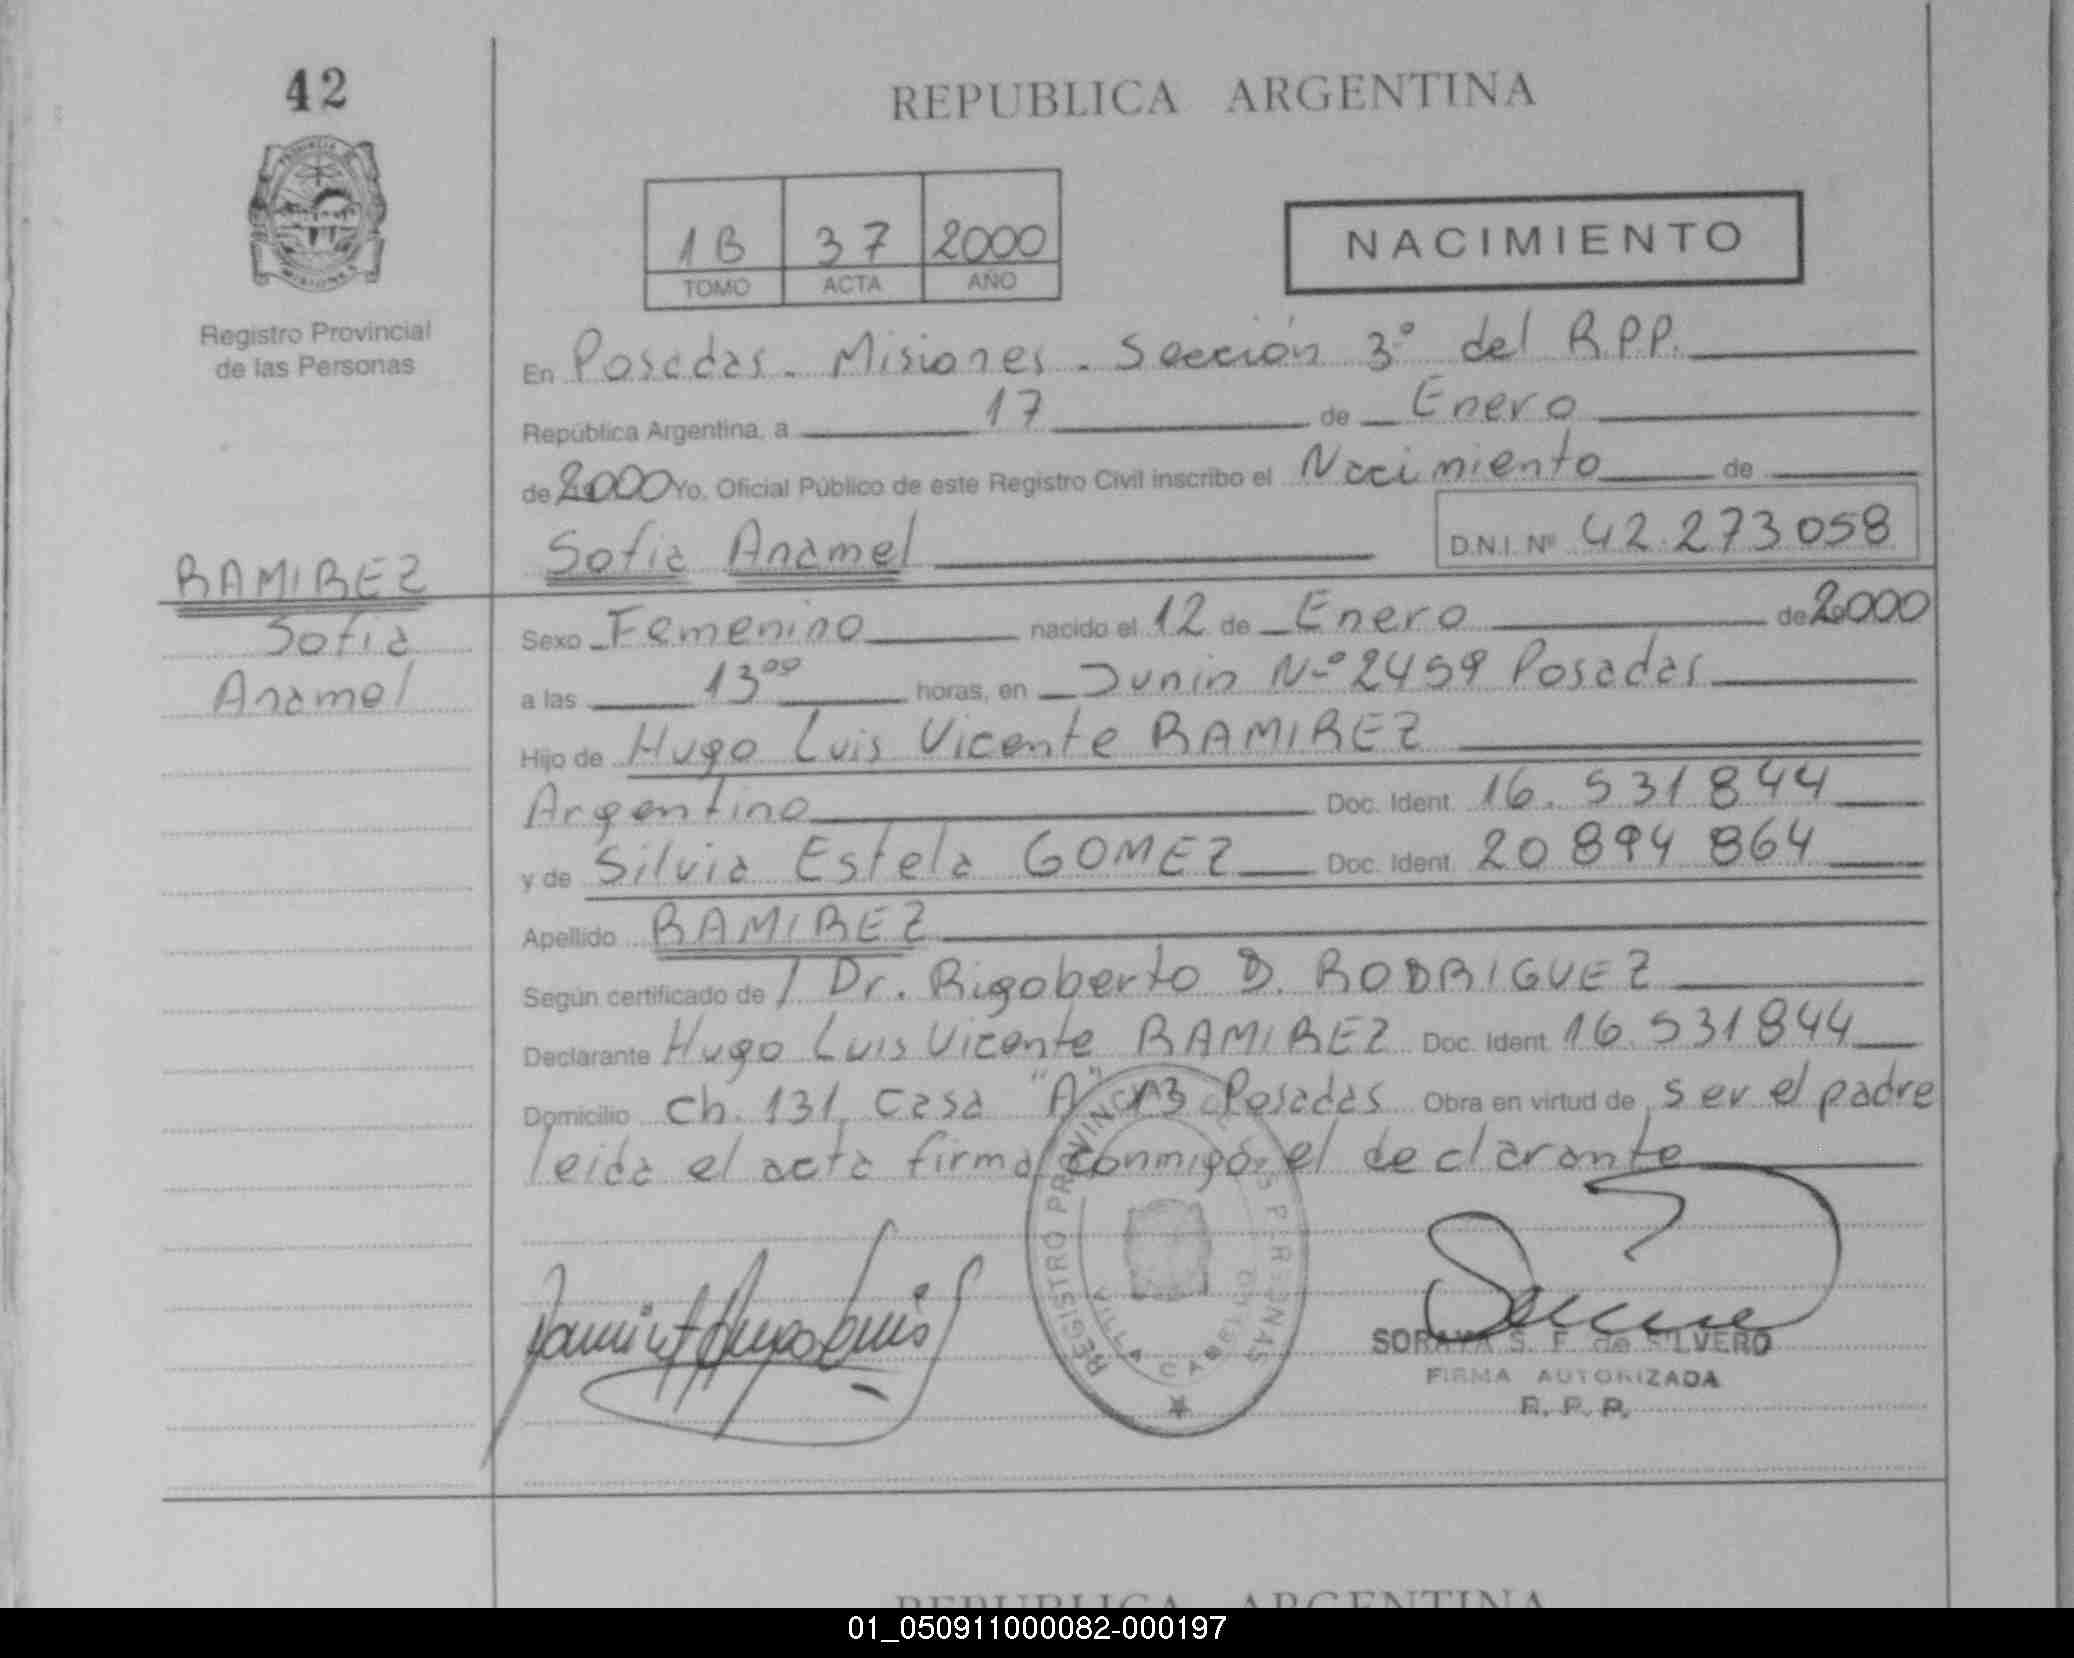 42
REPUBLICA ARGENTINA
1B 37 2000
TOMO ACTA AÑO
NACIMIENTO
Registro Provincial
de las Personas
En Posadas - Misiones - Sección 3° del R.P.P.
República Argentina, a 17 de Enero
de 2000 Yo, Oficial Público de este Registro Civil inscribo el Nacimiento de
Sofia Anamel D.N.I. Nº 42.273058
RAMIREZ
Sofia
Anamel
Sexo Femenino nacido el 12 de Enero de 2000
a las 13⁰⁰ horas, en Junin Nº 2459 Posadas
Hijo de Hugo Luis Vicente RAMIREZ
Argentino Doc. Ident. 16.531844
y de Silvia Estela GOMEZ Doc. Ident. 20 894 864
Apellido RAMIREZ
Según certificado de / Dr. Rigoberto D. RODRIGUEZ
Declarante Hugo Luis Vicente RAMIREZ Doc. Ident. 16.531844
Domicilio Ch. 131, Casa "A" 13 Posadas Obra en virtud de ser el padre
leida el acta firma conmigo el declarante
REGISTRO PROVINCIAL DE LAS PERSONAS
VILLA CABELLO
SORAYA S. F. de SILVERO
FIRMA AUTORIZADA
R. P. P.
REPUBLICA ARGENTINA
01_050911000082-000197